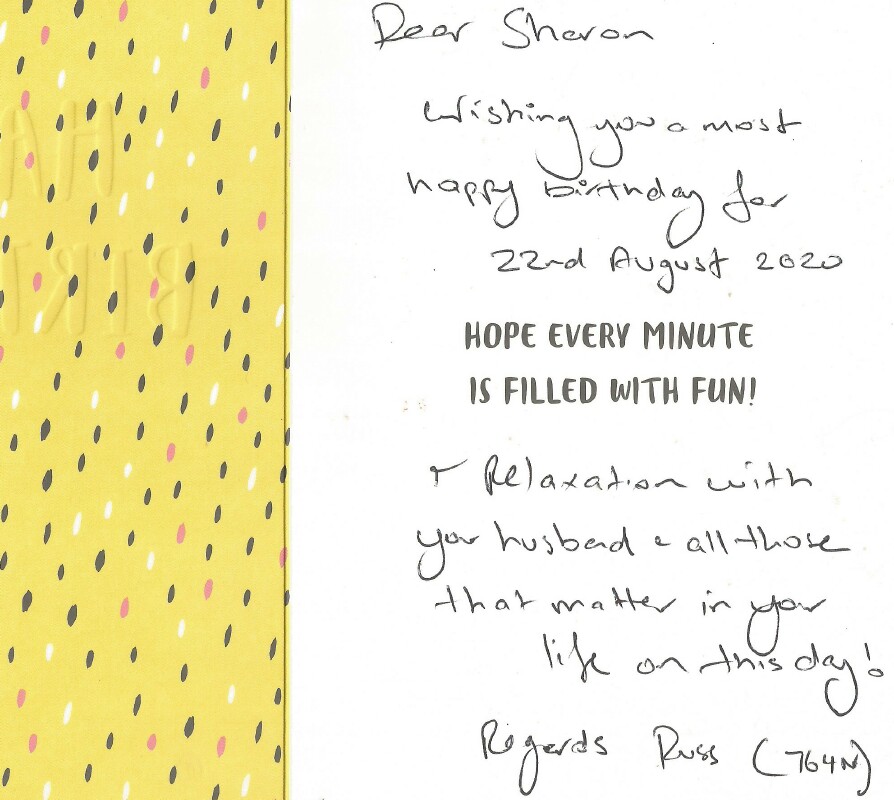 HA
BIRT
Dear Sharon
Wishing you a most
happy birthday for
22nd August 2020
HOPE EVERY MINUTE
IS FILLED WITH FUN!
+ Relaxation with
your husband & all those
that matter in your
life on this day!
Regards Russ (764N)